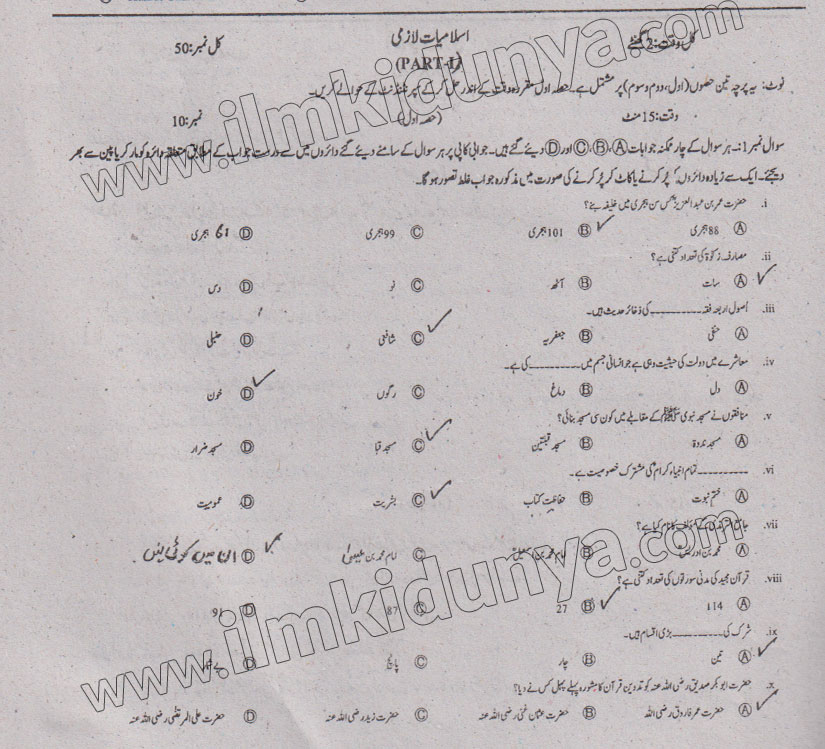 اسلامیات لازمی
کل وقت: 2 گھنٹے
کل نمبر: 50
(PART-I)
نوٹ: یہ پرچہ تین حصوں (اول، دوم و سوم) پر مشتمل ہے۔ حصہ اول مقررہ وقت کے اندر حل کر کے سپرنٹنڈنٹ کے حوالے کریں۔
وقت: 15 منٹ (حصہ اول) نمبر: 10
سوال نمبر 1:۔ ہر سوال کے چار ممکنہ جوابات Ⓐ، Ⓑ، Ⓒ اور Ⓓ دیئے گئے ہیں۔ جوابی کاپی پر ہر سوال کے سامنے دیئے گئے دائروں میں سے درست جواب کے مطابق متعلقہ دائرہ کو مارکر یا پین سے بھر
دیجئے۔ ایک سے زیادہ دائروں کو پُر کرنے یا کاٹ کر پُر کرنے کی صورت میں مذکورہ جواب غلط تصور ہو گا۔
i. حضرت عمر بن عبدالعزیز کس سن ہجری میں خلیفہ بنے؟
Ⓐ 88 ہجری Ⓑ 101 ہجری Ⓒ 99 ہجری Ⓓ ہجری
ii. مصارف زکوٰۃ کی تعداد کتنی ہے؟
Ⓐ سات Ⓑ آٹھ Ⓒ نو Ⓓ دس
iii. اصول اربعہ فقہ ـــــــــ کی ذخائر حدیث ہیں۔
Ⓐ حنفی Ⓑ جعفریہ Ⓒ شافعی Ⓓ حنبلی
iv. معاشرے میں دولت کی حیثیت وہی ہے جو انسانی جسم میں ـــــــــ کی ہے۔
Ⓐ دل Ⓑ دماغ Ⓒ رگوں Ⓓ خون
v. منافقوں نے مسجد نبوی ﷺ کے مقابلے میں کون سی مسجد بنائی؟
Ⓐ مسجد ندوۃ Ⓑ مسجد قبلتین Ⓒ مسجد قبا Ⓓ مسجد ضرار
vi. ـــــــــ تمام انبیاء کرام کی مشترک خصوصیت ہے۔
Ⓐ ختم نبوت Ⓑ حفاظت کتاب Ⓒ بشریت Ⓓ عمومیت
vii. جامع الترمذی کے مؤلف کا نام کیا ہے؟
Ⓐ محمد بن ادریس Ⓑ امام محمد بن اسمٰعیل Ⓒ امام محمد بن عیسیٰ Ⓓ ان میں کوئی نہیں
viii. قرآن مجید کی مدنی سورتوں کی تعداد کتنی ہے؟
Ⓐ 114 Ⓑ 27 Ⓒ 87 Ⓓ 91
ix. شرک کی ـــــــــ بڑی اقسام ہیں۔
Ⓐ تین Ⓑ چار Ⓒ پانچ Ⓓ
x. حضرت ابوبکر صدیق رضی اللہ عنہ کو تدوین قرآن کا مشورہ پہلے پہل کس نے دیا؟
Ⓐ حضرت عمر فاروق رضی اللہ Ⓑ حضرت عثمان غنی رضی اللہ عنہ Ⓒ حضرت زید رضی اللہ عنہ Ⓓ حضرت علی المرتضٰی رضی اللہ عنہ
www.ilmkidunya.com
www.ilmkidunya.com